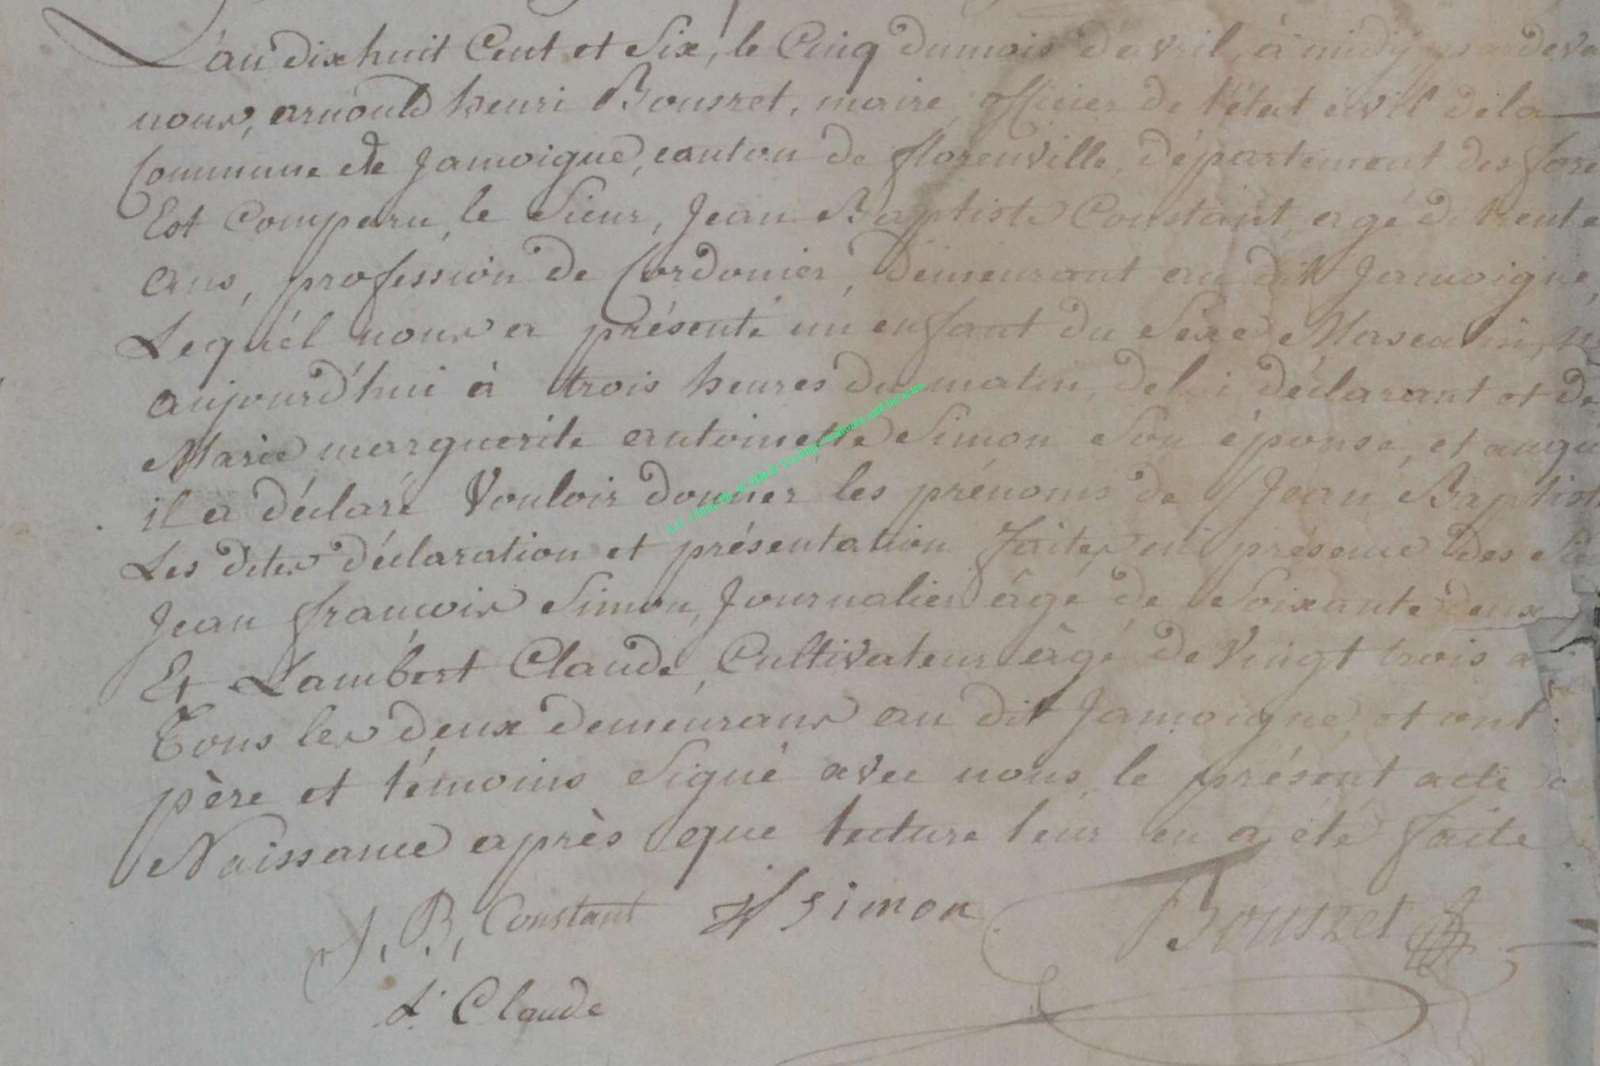 L'an dix huit Cent et Six, le Cinq du mois d'avril, à midy, pardeva
nous, arnould henri Bousret, maire, officier de l'état civil de la
Commune de Jamoigne, canton de florenville, département des fore
Est Comparu, le Sieur, Jean Baptiste Constant, agé de trente
ans, profession de Cordonier, demeurant au dit Jamoigne,
Lequél nous a présenté un enfant du Séxe Masculin, né
aujourd'hui à trois heures du matin, de lui déclarant et de
Marie marguerite antoinette Simon Son épouse, et auqu
il a déclaré Vouloir donner les prénoms de Jean Baptist
Les dites déclaration et présentation faites en présence des Si
Jean françois Simon, Journalier âgé de Soixante deux
Et Lambert Claude, Cultivateur âgé de Vingt trois a
Tous les deux demeurans au dit Jamoigne, et ont
père et témoins Signé avec nous, le présent acte d
Naissance après que lecture leur en a été faite
J. B. Constant jf simon Bousret
L. Claude